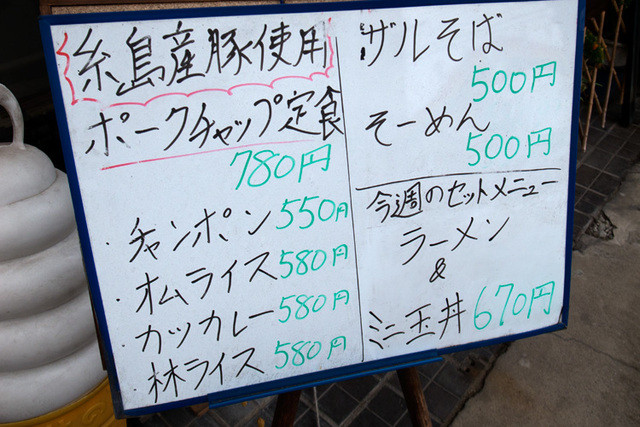 糸島産豚使用
ポークチャップ定食
780円
・チャンポン 550円
・オムライス 580円
・カツカレー 580円
・林ライス 580円
ザルそば
500円
そーめん
500円
今週のセットメニュー
ラーメン
&
ミニ玉丼 670円